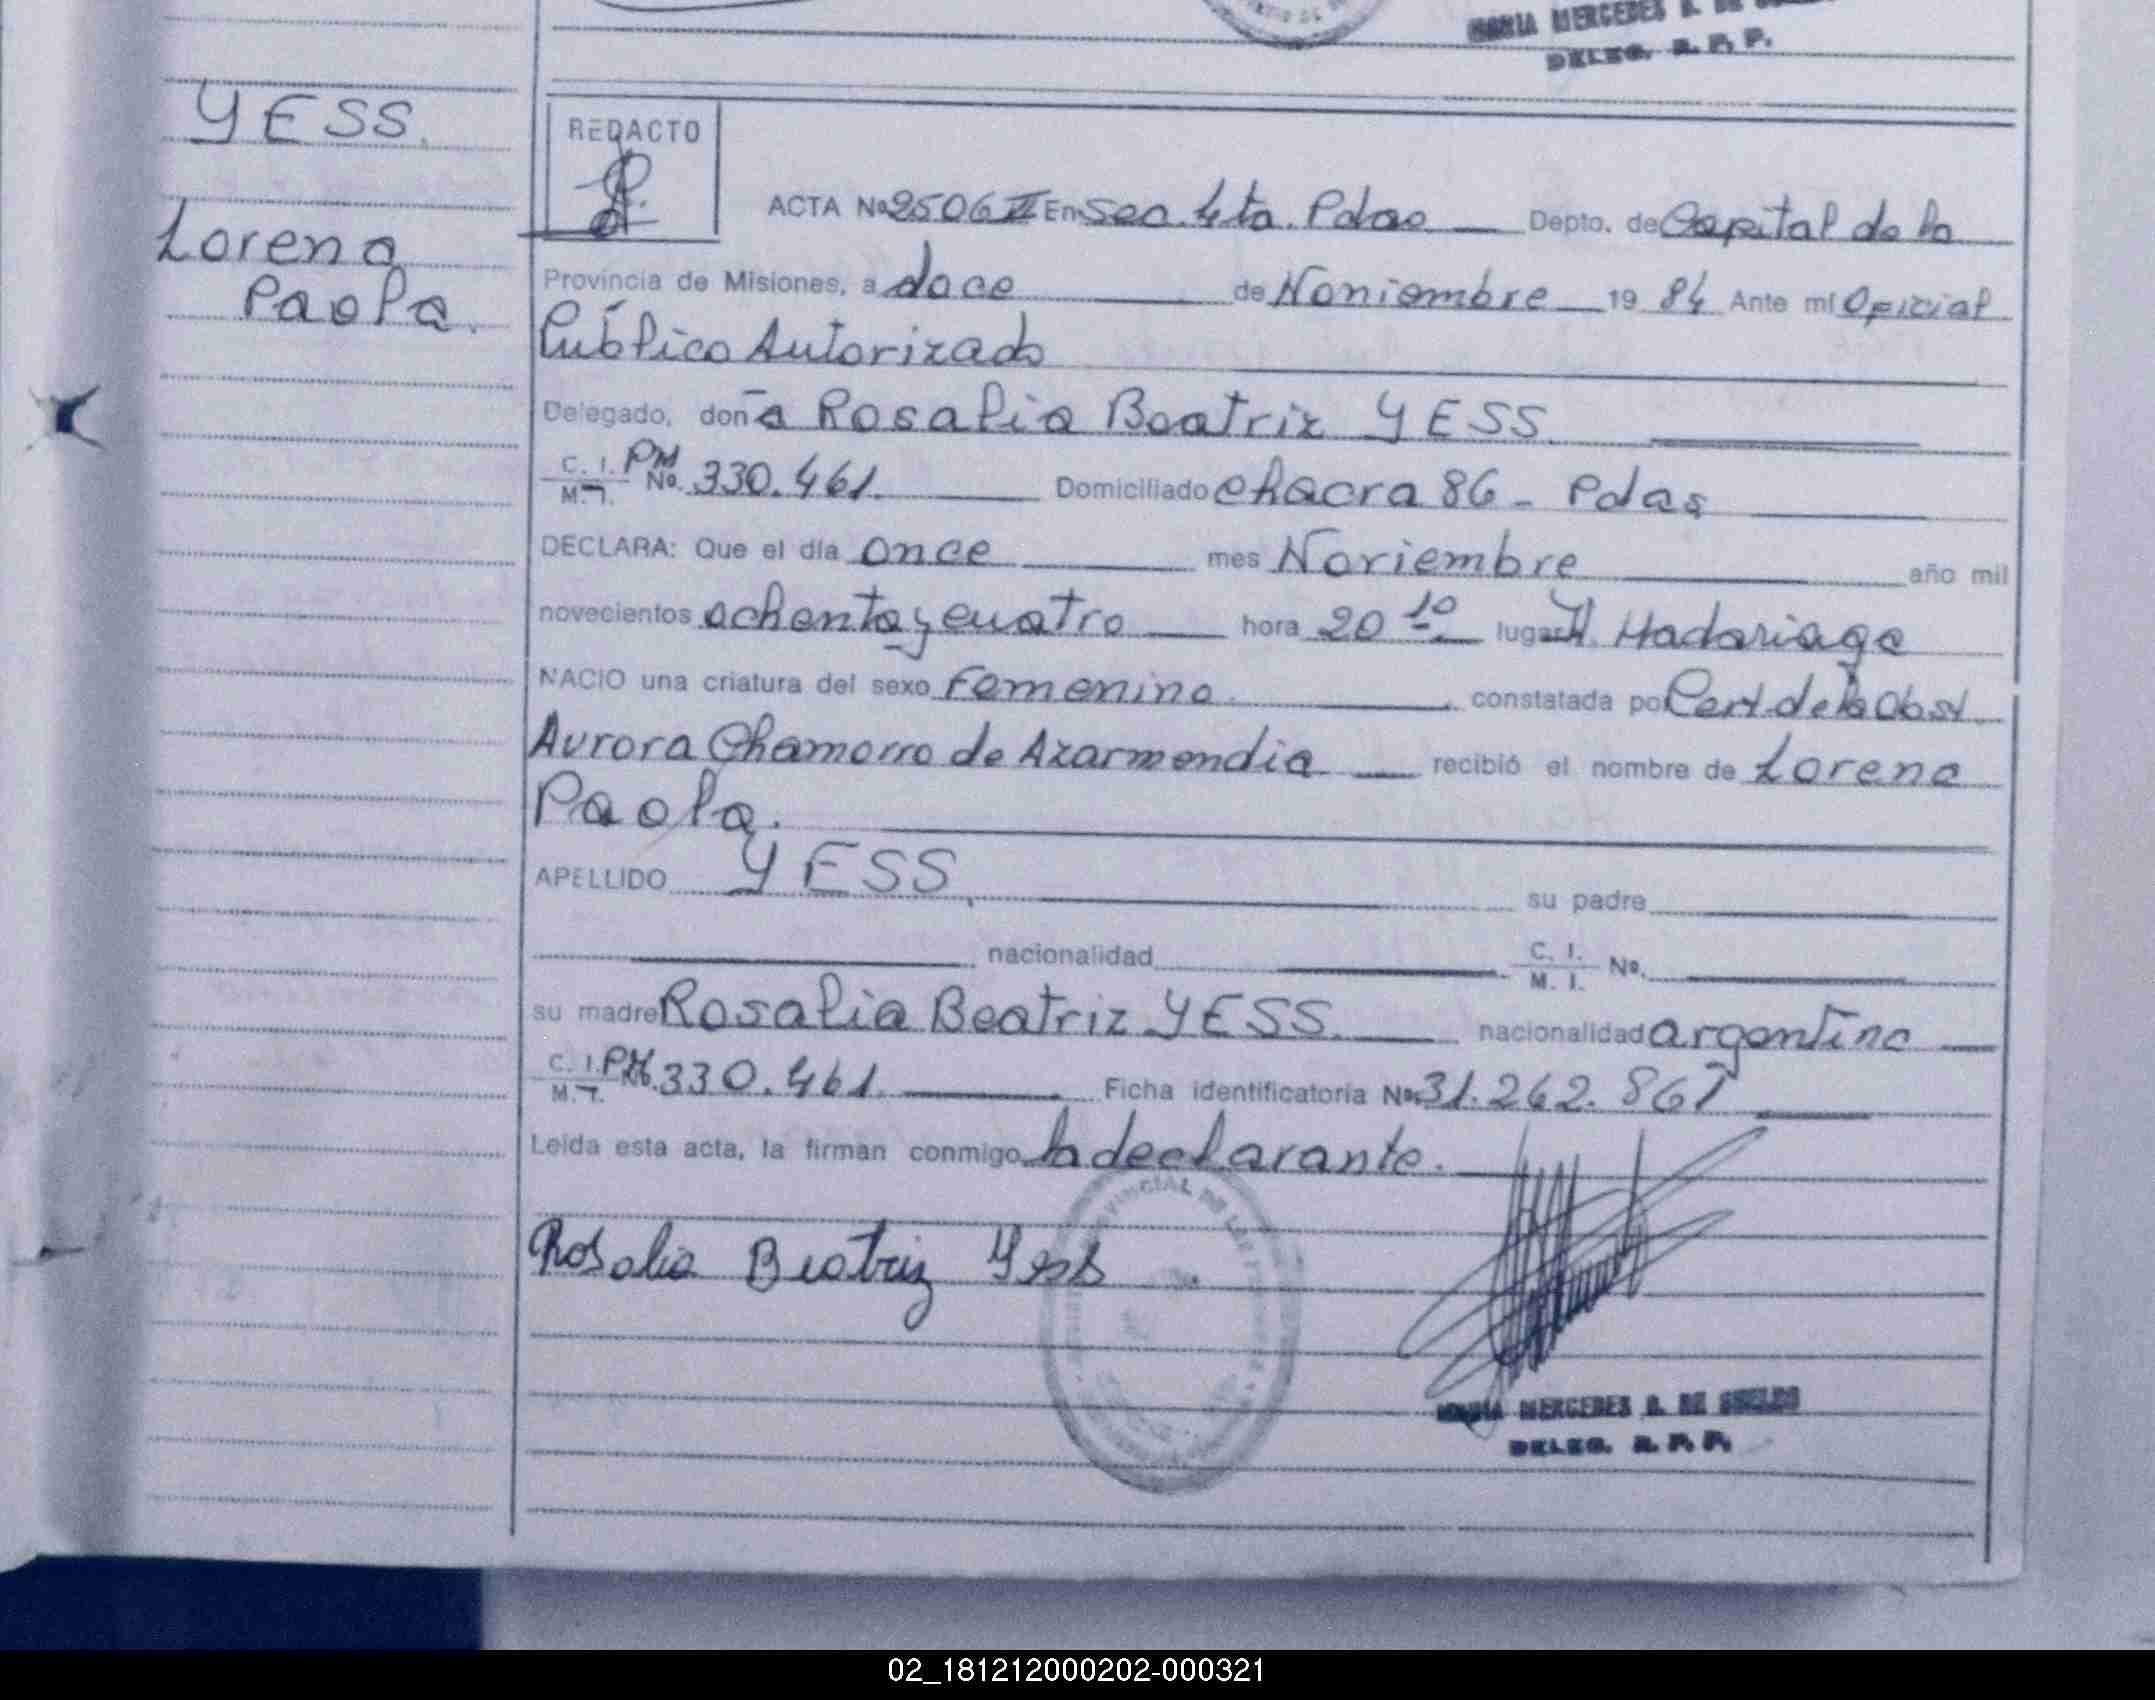 MARIA MERCEDES
DELEG. R. P. P.
YESS.
Lorena
Paola.
REDACTO
ACTA No 2506 II En Sec. 4ta. Pdas Depto. de Capital de la
Provincia de Misiones, a doce de Noviembre 19 84 Ante mí Oficial
Público Autorizado
Delegado, doña Rosalia Beatriz YESS
C. I. PM No. 330.461. Domiciliado chacra 86 - Pdas
M. I.
DECLARA: Que el día once mes Noviembre año mil
novecientos ochenta y cuatro hora 20 10 lugar H. Madariaga
NACIO una criatura del sexo Femenino. constatada por Cert. de la Obst.
Aurora Chamorro de Azarmendia recibió el nombre de Lorena
Paola.
APELLIDO YESS su padre
nacionalidad C. I. No.
M. I.
su madre Rosalia Beatriz YESS. nacionalidad argentina
C. I. PM No. 330.461. Ficha identificatoria No. 31.262.867
M. I.
Leída esta acta, la firman conmigo la declarante.
PROVINCIAL DE
Rosalia Beatriz Yess
MARIA MERCEDES DE
DELEG. R. P. P.
02_181212000202-000321